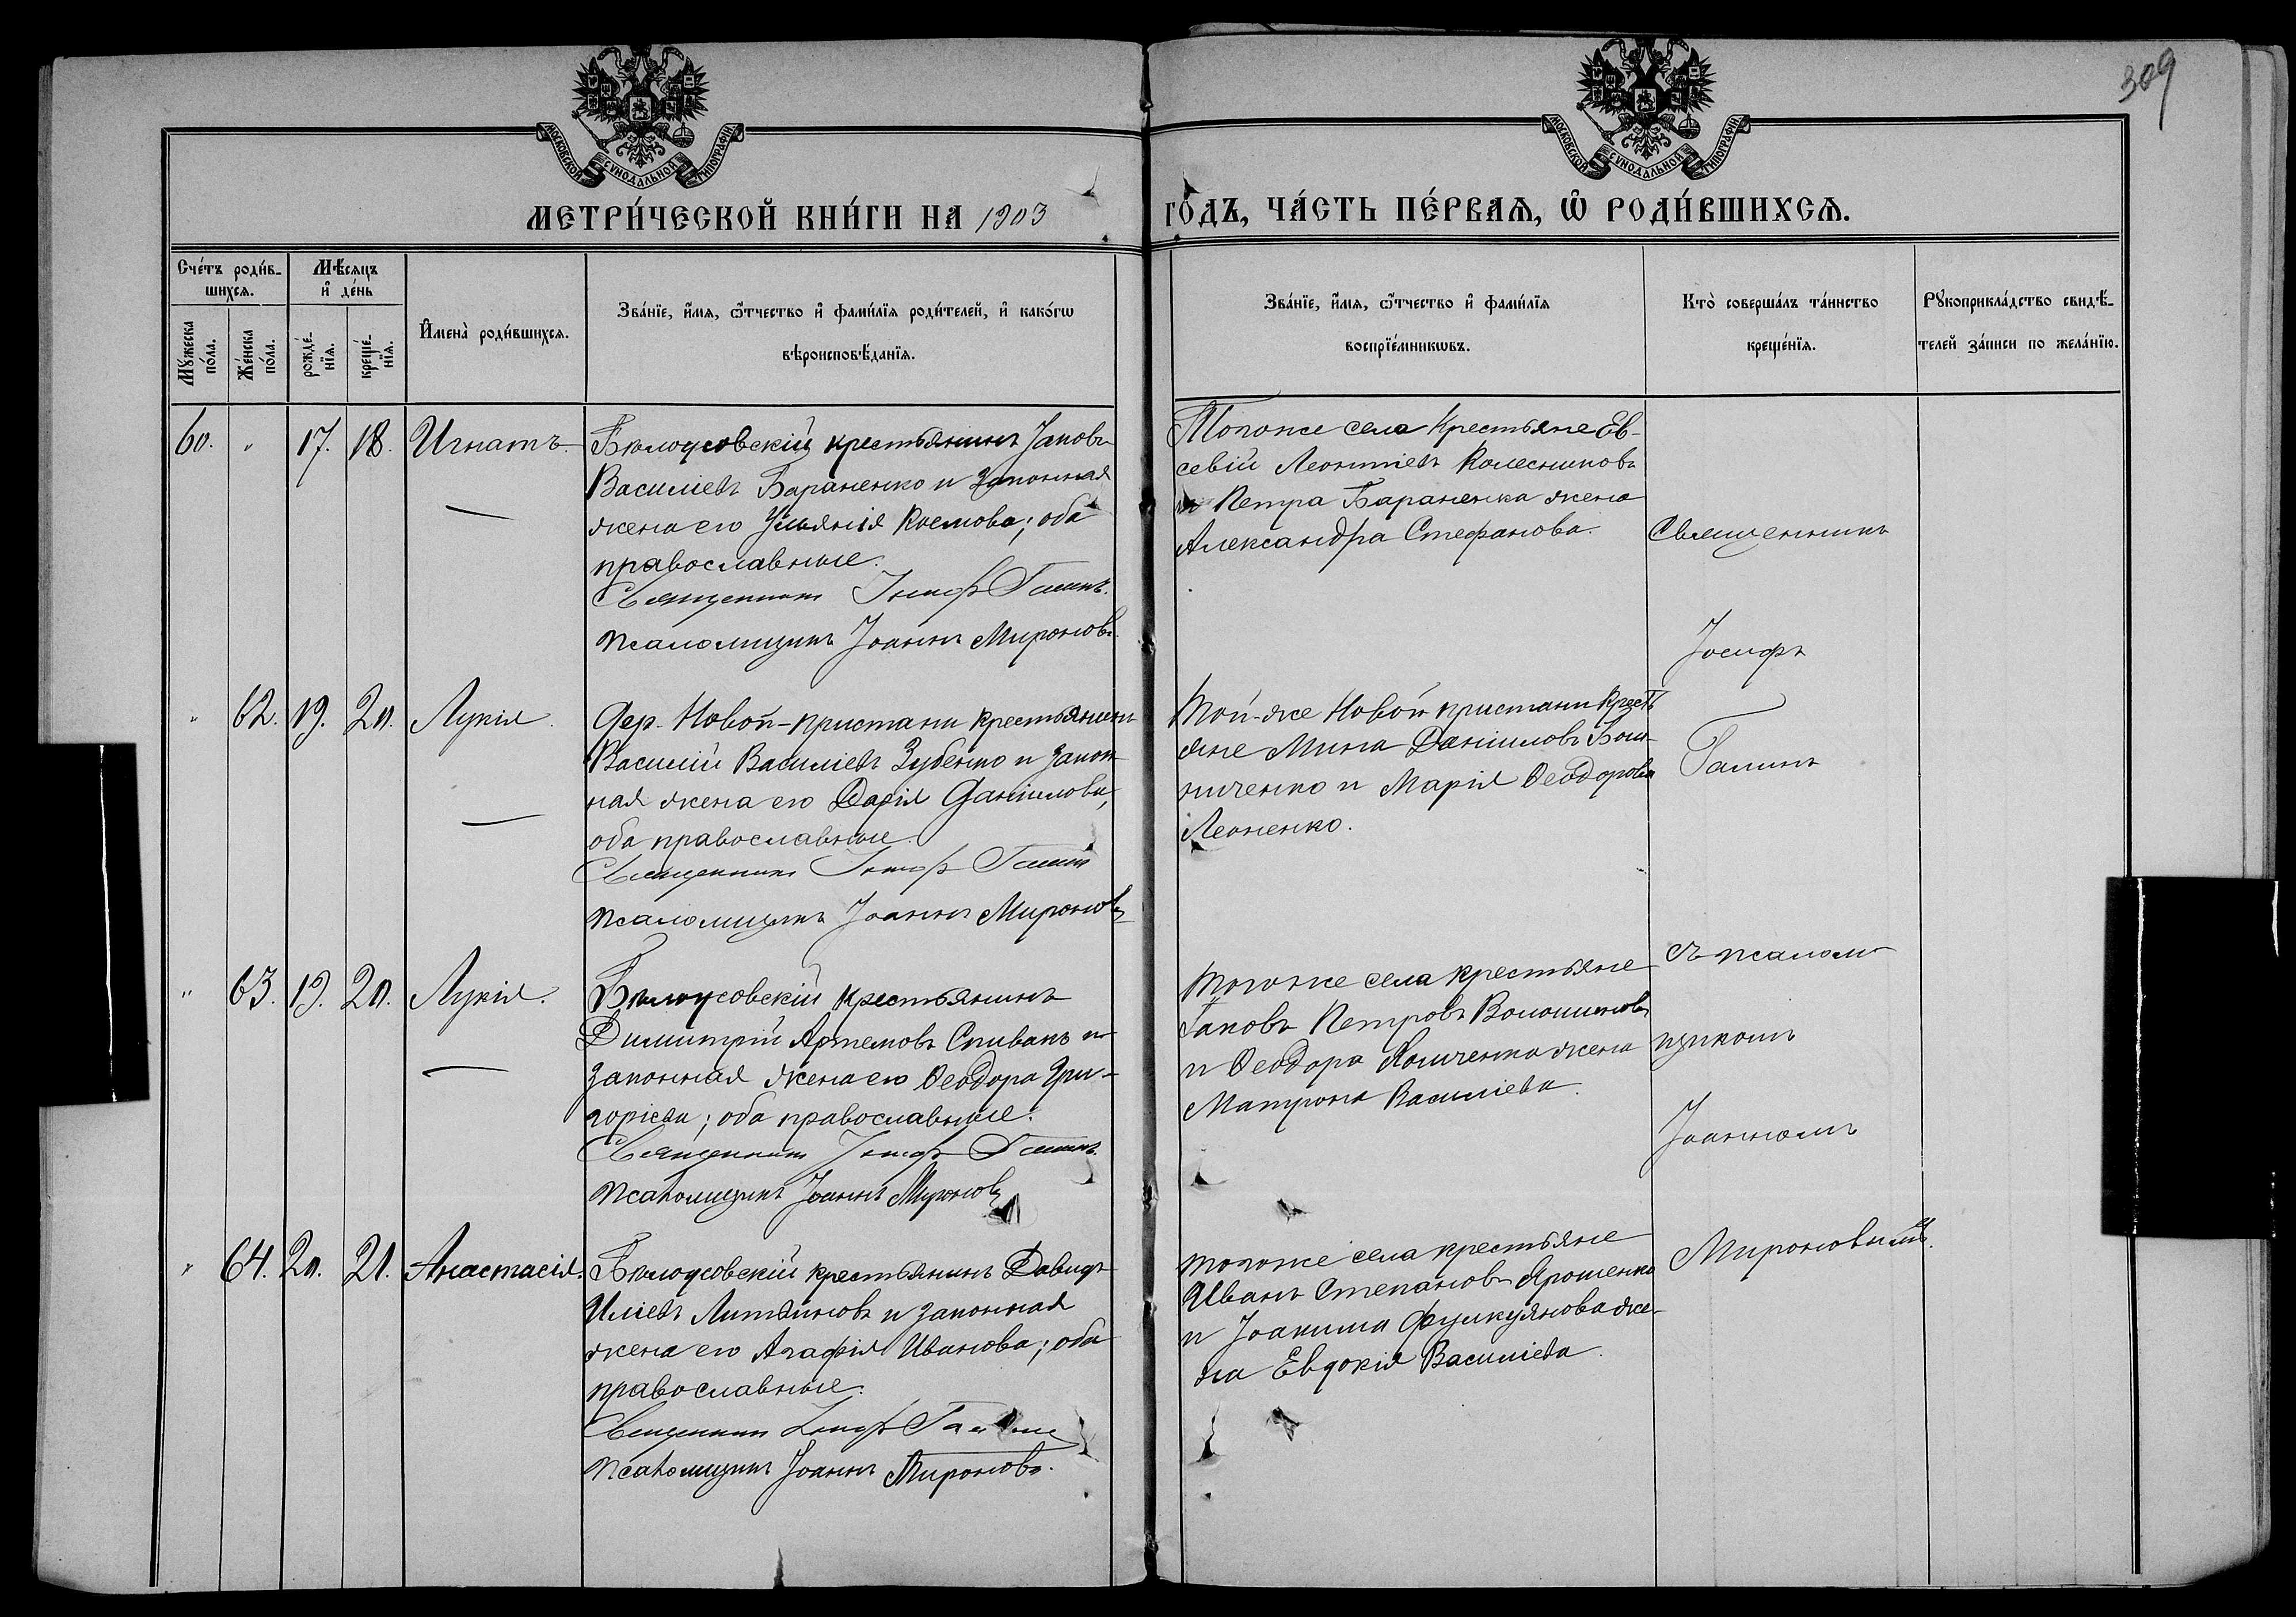 309
МОСКОВСКОЙ СѴНОДАЛЬНОЙ ТИПОГРАФІИ
МОСКОВСКОЙ СѴНОДАЛЬНОЙ ТИПОГРАФІИ
МЕТРИ́ЧЕСКОЙ КНИ́ГИ НА 1903 ГО́ДЪ, ЧА́СТЬ ПЕ́РВАѦ, Ѿ РОДИ́ВШИХСѦ.
Сче́тъ роди́в-
шихсѧ.
Мꙋ́жеска
по́ла.
Же́нска
по́ла.
Мѣ́сѧцъ
и҆ де́нь
рожде́-
нїѧ.
креще́-
нїѧ.
И҆мена̀ роди́вшихсѧ.
Зва́нїе, и҆́мѧ, ѻ҆́тчество и҆ фами́лїѧ роди́телей, и҆ како́гѡ
вѣроисповѣ́данїѧ.
Зва́нїе, и҆́мѧ, ѻ҆́тчество и҆ фами́лїѧ
воспрїе́мникѡвъ.
Кто̀ соверша́лъ та́инство
креще́нїѧ.
Рꙋкоприкла́дство свидѣ́-
телей за́писи по жела́нїю.
60. " 17. 18. Игнатъ.
Бѣлоусовскій крестьянинъ Іаковъ
Василіевъ Бараненко и законная
жена его Ульянія Космова; оба
православные.
Священникъ Іосифъ Галинъ.
Псаломщикъ Іоаннъ Мироновъ.
Тогоже села крестьяне Ев-
севій Леонтіевъ Колесниковъ
и Петра Бараненка жена
Александра Стефанова.
" 62. 19. 20. Лукія.
Дер. Новой-пристани крестьянинъ
Василій Василіевъ Зубенко и закон-
ная жена его Дарія Даніилова,
оба православные.
Священникъ Іосифъ Галинъ
Псаломщикъ Іоаннъ Мироновъ
Той-же Новой пристани кресть
яне Мина Даніиловъ
и Марія Ѳеодорова
Леоненко.
" 63. 19. 20. Лукія.
Бѣлоусовскій крестьянинъ
Димитрій Артемовъ Спивакъ и
законная жена его Ѳеодора Гри-
горіева; оба православные.
Священникъ Іосифъ Галинъ.
Псаломщикъ Іоаннъ Мироновъ
Тогоже села крестьяне
Іаковъ Петровъ Волошиновъ
и Ѳеодора жена
Матрона Василіева.
" 64. 20. 21. Анастасія.
Бѣлоусовскій крестьянинъ Давидъ
Иліевъ Литвиновъ и законная
жена его Агафія Иванова; оба
православные.
Священникъ Іосифъ Галинъ
Псаломщикъ Іоаннъ Мироновъ.
Тогоже села крестьяне
Иванъ Степановъ Ярошенко
и Іоакима же-
на Евдокія Василіева.
Священникъ
Іосифъ
Галинъ
съ псалом-
щикомъ
Іоанномъ
Мироновымъ.